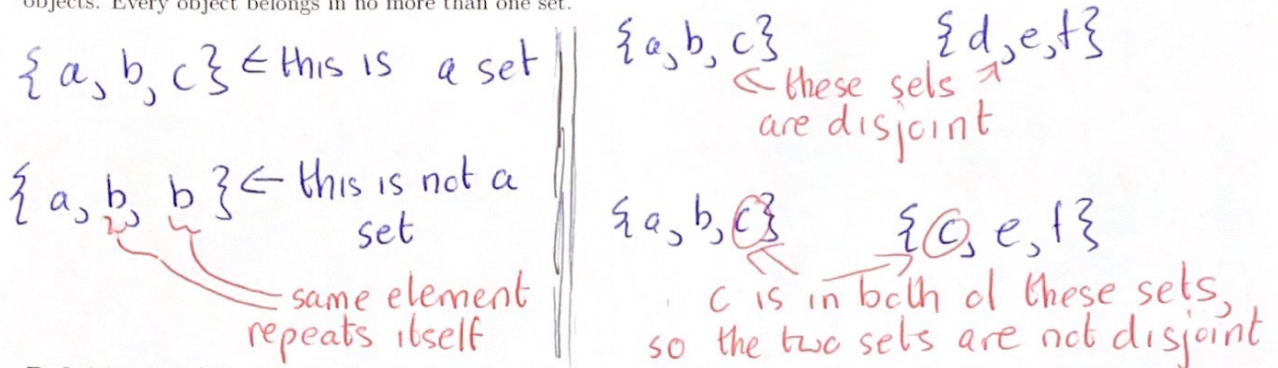 objects. Every object belongs in no more than one set.
{a, b, c} ← this is a set
{a, b, b} ← this is not a
set
same element
repeats itself
{a, b, c} {d, e, f}
← these sets
are disjoint
{a, b, c} {c, e, f}
c is in both of these sets,
so the two sets are not disjoint